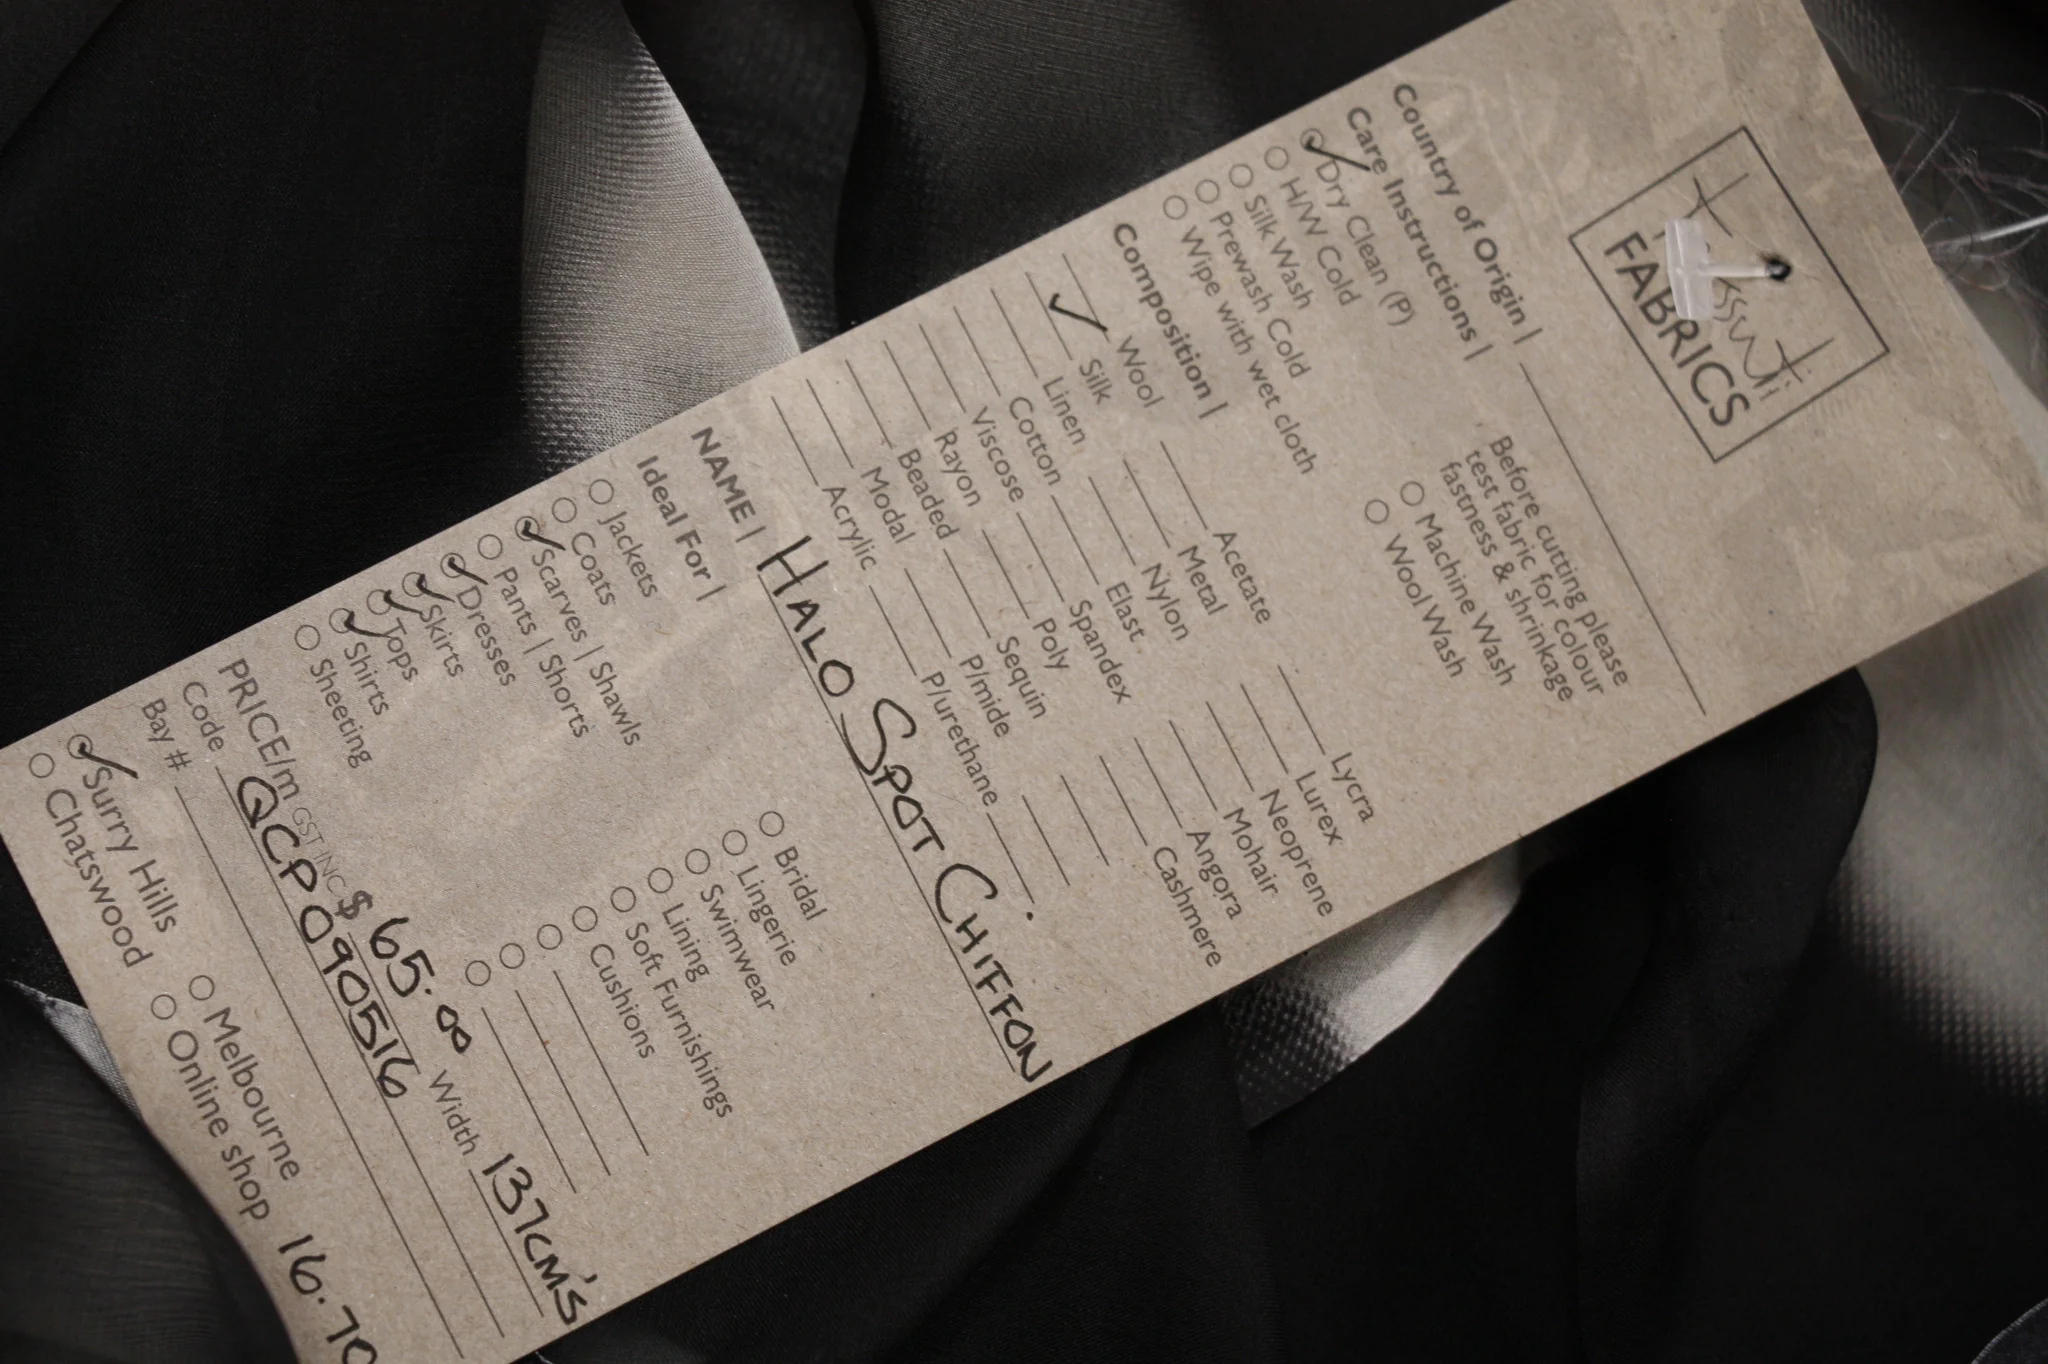 tessuti
FABRICS
Country of Origin |
Care Instructions |
Dry Clean (P)
H/W Cold
Silk Wash
Prewash Cold
Wipe with wet cloth
Before cutting please
test fabric for colour
fastness & shrinkage
Machine Wash
Wool Wash
Composition |
Wool
Silk
Linen
Cotton
Viscose
Rayon
Beaded
Modal
Acrylic
Acetate
Metal
Nylon
Elast
Spandex
Poly
Sequin
P/mide
P/urethane
Lycra
Lurex
Neoprene
Mohair
Angora
Cashmere
NAME | HALO SPOT CHIFFON
Ideal For |
Jackets
Coats
Scarves | Shawls
Pants | Shorts
Dresses
Skirts
Tops
Shirts
Sheeting
Bridal
Lingerie
Swimwear
Lining
Soft Furnishings
Cushions
PRICE/m GST INC $ 65.00 Width 137CM'S
Code QCP090516
Bay #
Surry Hills
Chatswood
Melbourne
Online shop
16.70